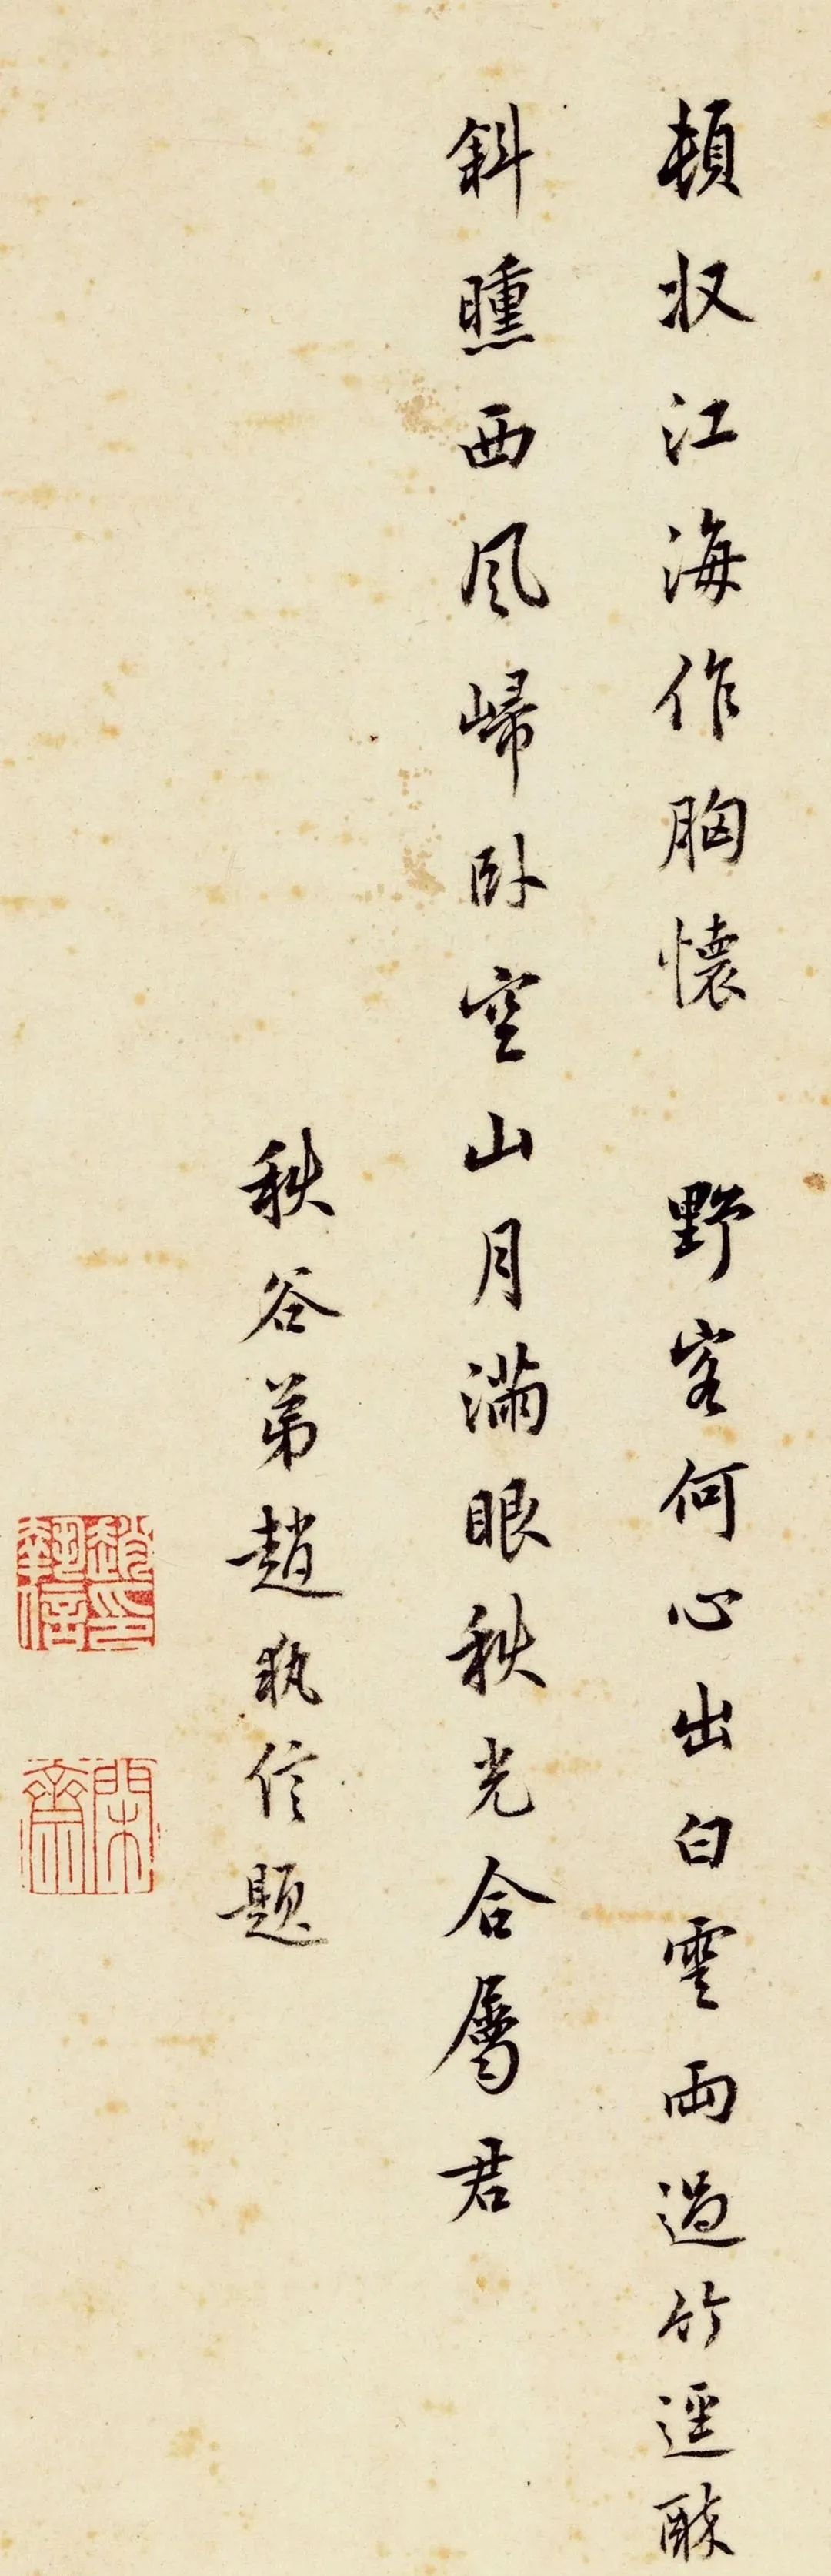 頓收江海作胸懷　野客何心出白雲雨過竹逕醉
斜曛西風歸卧空山月滿眼秋光合屬君
秋谷弟趙執信題
趙執信印
閑齋